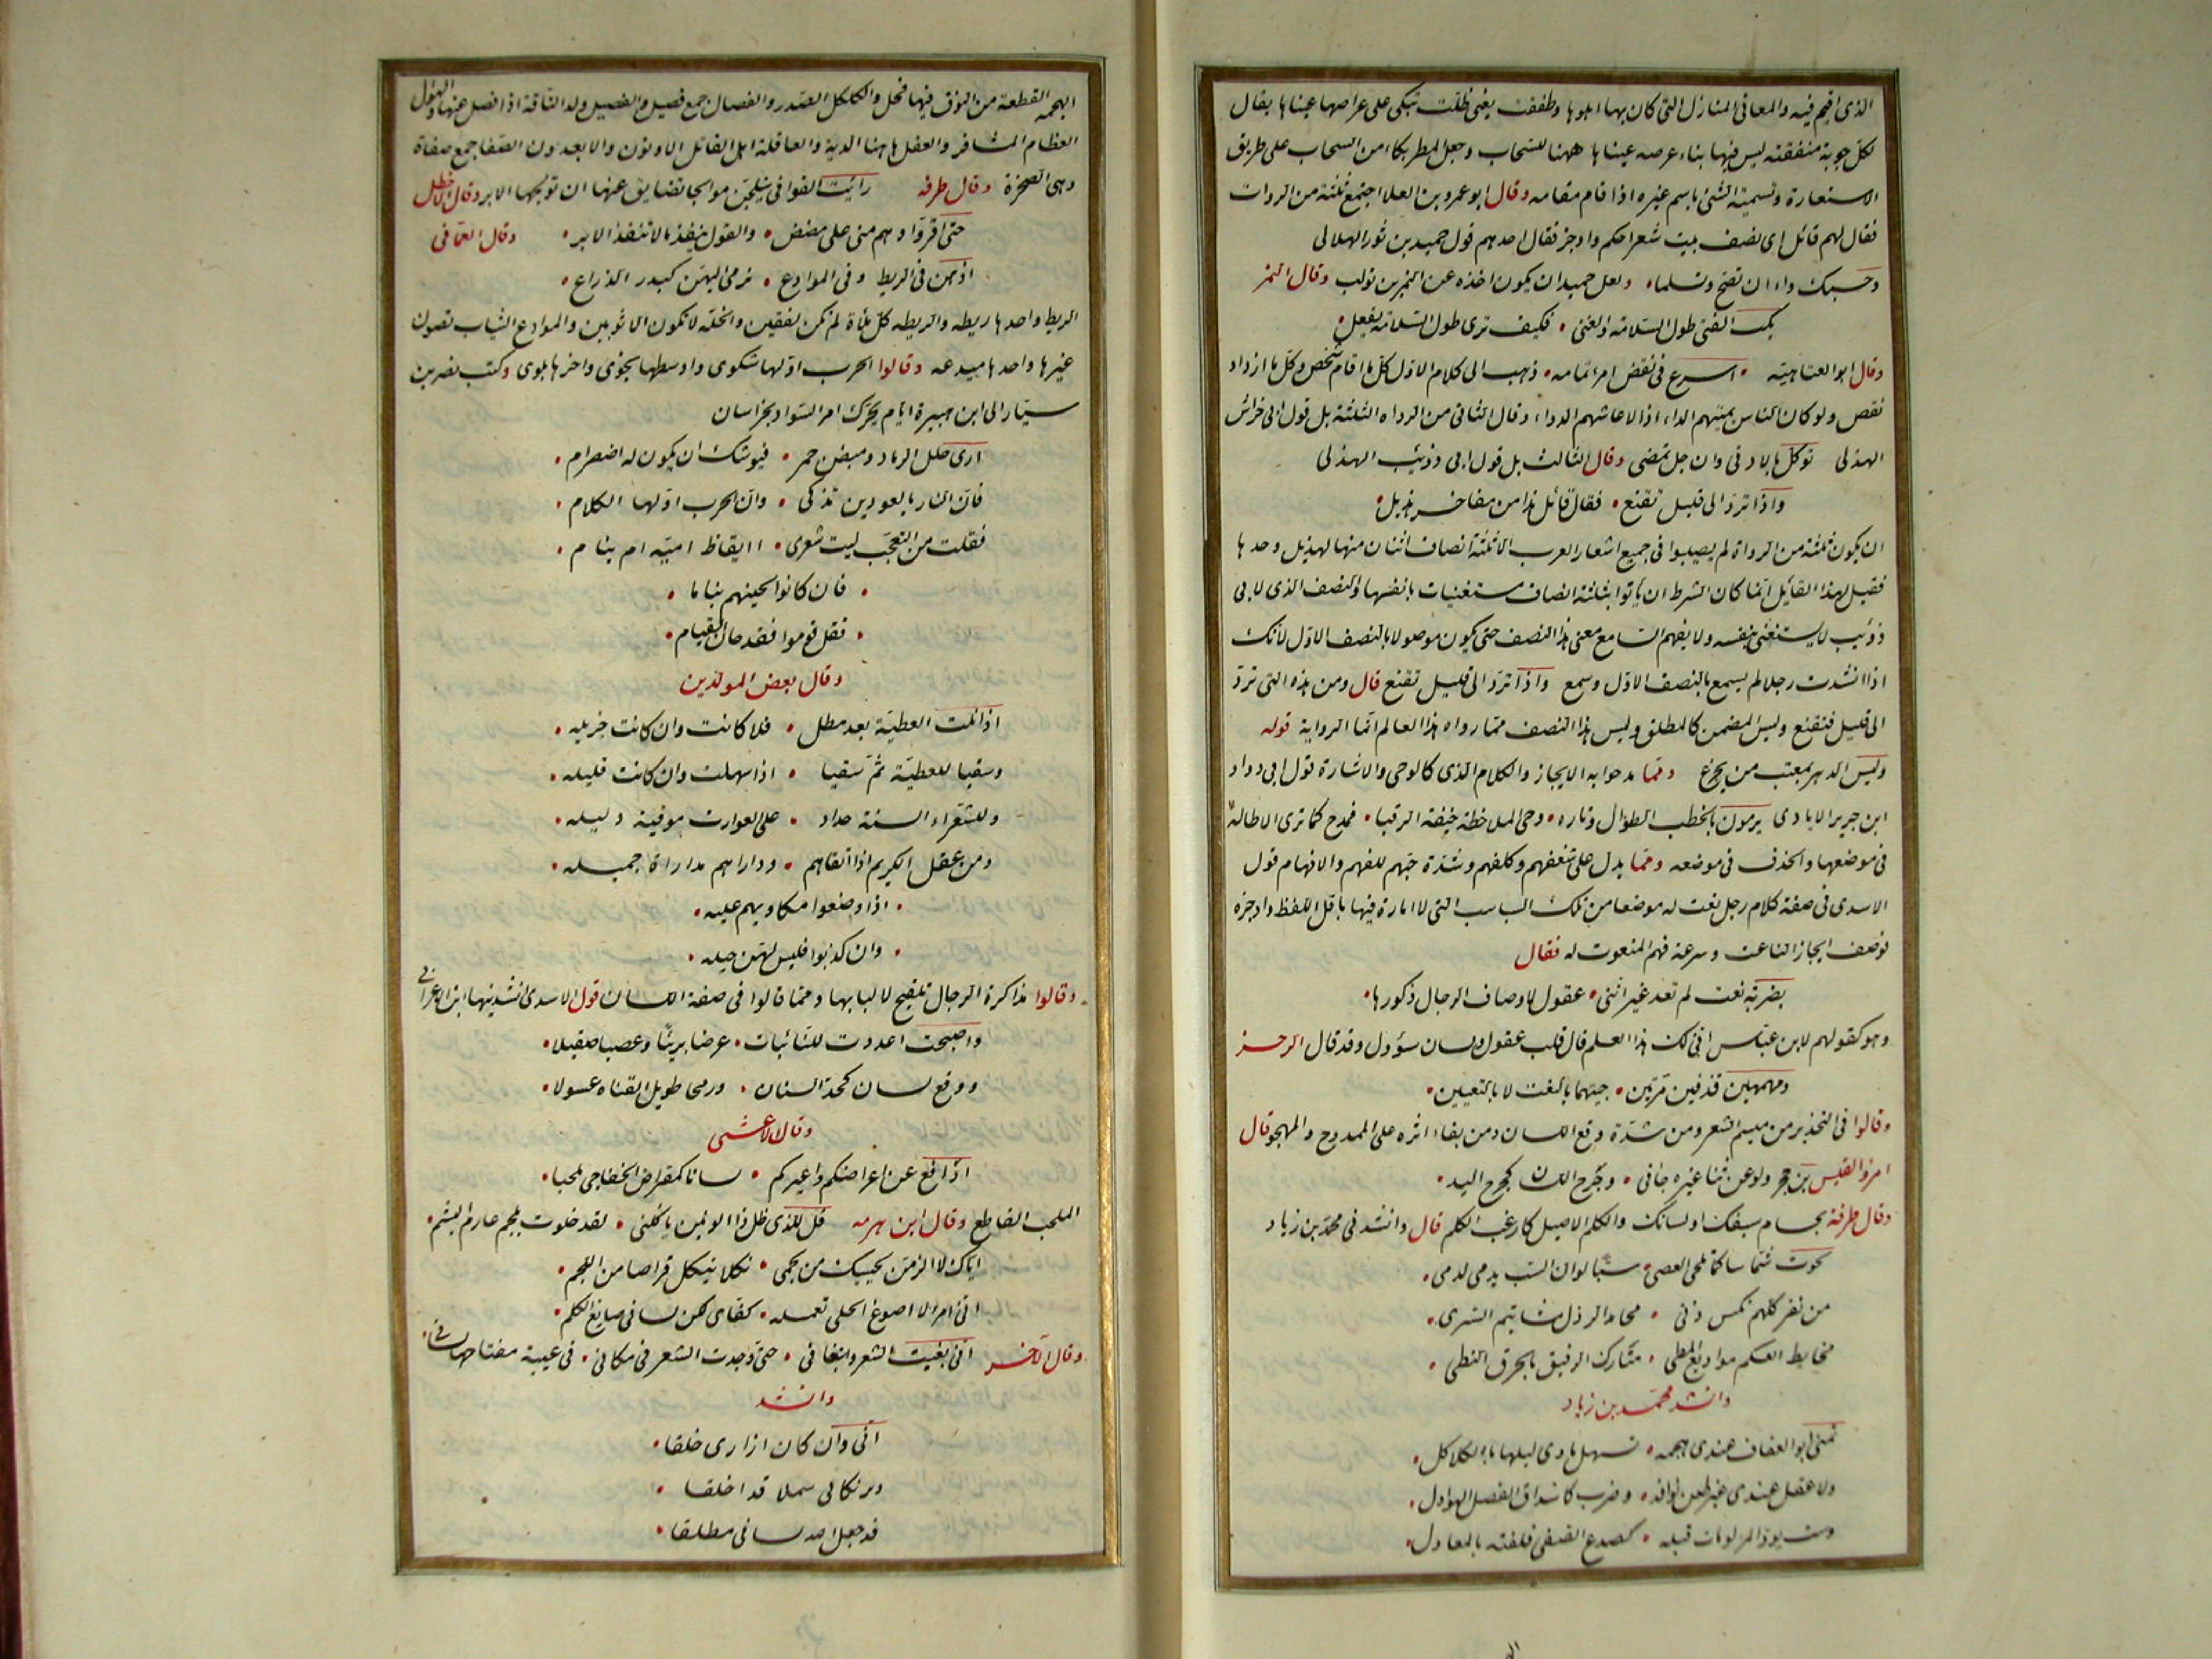 الذى اقيم فيه والمعانى المنازل التى كان بها اهلوها وطفقت يعنى ظلت تبكى على عراصها عيناها يقال
لكل جوبة منفتقة ليس فيها بناء عرصه عيناها ههنا للسحاب وجعل المطر بكاء من السحاب على طريق
الاستعارة وتسمية الشئ باسم غيره اذا قام مقامه وقال ابو عمرو بن العلا اجتمع ثلثة من الرواة
فقال لهم قائل اى نصف بيت شعر احكم واوجز فقال احدهم قول حميد بن ثور الهلالى
وحسبك داء ان تصح وتسلما، ولعل حميدا ان يكون اخذه عن النمر بن تولب وقال النمر
يحب الفتى طول السلامة والغنى • فكيف ترى طول السلامة يفعل •
وقال ابو العتاهيته • اسرع فى نقض امرء تمامه • ذهب الى كلام الاول كل ما اقام شخص وكل ما ازداد
نقص ولو كان الناس يميتهم الداء اذا لاعاشهم الدواء وقال الثانى من الرواه الثلثة بل قول ابى خراش
الهذلى توكل بالادنى وان جل تمضى وقال الثالث بل قول ابى ذؤيب الهذلى
واذا ترد الى قليل تقنع • فقال قائل هذا من مفاخر هذيل •
ان يكون ثلثة من الرواة لم يصيبوا فى جميع اشعار العرب الا ثلثة انصاف اثنان منها لهذيل وحدها
فقيل لهذا القائل انما كان الشرط ان ياتوا بثلثة انصاف مستغنيات بانفسها والنصف الذى لابى
ذؤيب لا يستغنى بنفسه ولا يفهم السامع معنى هذا النصف حتى يكون موصولا بالنصف الاول لانك
اذا انشدت رجلا لم يسمع بالنصف الاول وسمع واذا ترد الى قليل تقنع قال ومن هذه التى ترد
الى قليل فتقنع وليس المضمن كالمطلق وليس هذا النصف مما رواه هذا العالم انما الرواية قوله
وليس الدهر بمعتب من يجزع ومما مدحوا به الايجاز والكلام الذى كالوحى والاشارة قول ابى دواد
ابن جرير الايادى يرمون بالخطب الطوال وتاره • وحى الملاحظة خيفة الرقبا • فمدح كما ترى الاطالة
فى موضعها والحذف فى موضعه ومما يدل على شغفهم وكلفهم وشدة حبهم للفهم والافهام قول
الاسدى فى صفة كلام رجل نعت له موضعا من تلك السباسب التى لا امارة فيها باقل اللفظ واوجزه
فوصف ايجاز الناعت وسرعة فهم المنعوت له فقال
بضربة نعت لم تعد غير اننى • عقول لاوصاف الرجال ذكورها •
وهو كقولهم لابن عباس انى لك هذا العلم قال قلب عقول ولسان سؤول وقد قال الرجز
ومهمهين قذفين مرتين • جبتهما بالنعت لا بالنعتين •
وقالوا فى التحذير من ميسم الشعر ومن شدة وقع اللسان ومن بقاء اثره على الممدوح والمهجو قال
امرؤ القيس بن حجر ولو عن نثا غيره جانى • وجرح اللسان كجرح اليد •
وقال طرفة بحسام سيفك او لسانك والكلم الاصيل كارغب الكلم قال وانشد فى محمد بن زياد
لحوت شماسا كما تلحى العصى • سبا لو ان السب يدمى لدمى •
من نفر كلهم نكس دنى • محامد الرذل مشاتيم السرى •
مخابط العكم مواديع المطى • متارك الرفيق بالخرق النطى •
وانشد محمد بن زياد
تمنى ابو العفاف عندى هجمه • تسهل ماوى ليلها بالكلاكل •
ولا عقل عندى غير طعن نوافذ • وضرب كاشداق الفصال الهوادل •
وسب يود المرء لو مات قبله • كصدع الصفى فلقته بالمعاول •
الهجمه القطعة من النوق فيها فحل والكلكل الصدر والفصال جمع فصيل والفصيل ولد الناقة اذا فصل عنها والهدل
العظام المشافر والعقل هاهنا الدية والعاقلة اهل القاتل الادنون والابعدون الصفا جمع صفاة
وهى الصخرة وقال طرفه رايت القوافى يتلجن موالجا تضايق عنها ان تولجها الابر وقال الاخطل
حتى اقروا وهم منى على مضض • والقول ينفذ ما لا تنفذ الابر • وقال العمانى
اذ هن فى الريط وفى الموادع • ترمى اليهن كبدر الذراع •
الريط واحدها ريطه والريطه كل ملاة لم تكن لفقين والحله لا تكون الا ثوبين والموادع الثياب تصون
غيرها واحدها ميدعه وقالوا الحرب اولها شكوى واوسطها نجوى واخرها بلوى وكتب نصر بن
سيار الى ابن هبيرة ايام تحرك امر السواد بخراسان
ارى خلل الرماد وميض جمر • فيوشك ان يكون له اضطرام •
فان النار بالعودين تذكى • وان الحرب اولها الكلام •
فقلت من التعجب ليت شعرى • اايقاظ اميه ام نيام •
• فان كانوا لحينهم نياما •
• فقل قوموا فقد حان القيام •
وقال بعض المولدين
اذا نلت العطية بعد مطل • فلا كانت وان كانت جزيله •
وسقيا للعطية ثم سقيا • اذا سهلت وان كانت قليله •
وللشعراء السنة حداد • على العورات موفية دليله •
ومن عقل الكريم اذا اتقاهم • وداراهم مداراة جميله •
• اذا وضعوا مكاويهم عليه •
• وان كذبوا فليس لهن حيله •
وقالوا مذاكرة الرجال تلقيح لالبابها ومما قالوا فى صفة اللسان قول الاسدى انشدنيها ابن الاعرابى
واصبحت اعددت للنائبات • عرضا بريئا وعضبا صقيلا •
ووقع لسان كحد السنان • ورمحا طويل القناه عسولا •
وقال الاعشى
ادافع عن اعراضكم واعيركم • لسانا كمقراض الخفاجى ملحبا •
الملحب القاطع وقال ابن هرمه قل للذى ظل ذا لونين ياكلنى • لقد خلوت بلحم عارم البشم •
اياك لا الزمن لحييك من لجمى • نكلا ينكل قراصا من اللجم •
انى امرؤ لا اصوغ الحلى تعمله • كفاى لكن لسانى صايغ الكلم •
وقال الآخر انى بغيت الشعر وابتغانى • حتى وجدت الشعر فى مكانى • فى عيبة مفتاحها لسانى •
وانشد
انى وان كان ازارى خلقا •
وبرنكانى سملا قد اخلقا •
قد جعل الله لسانى مطلقا •